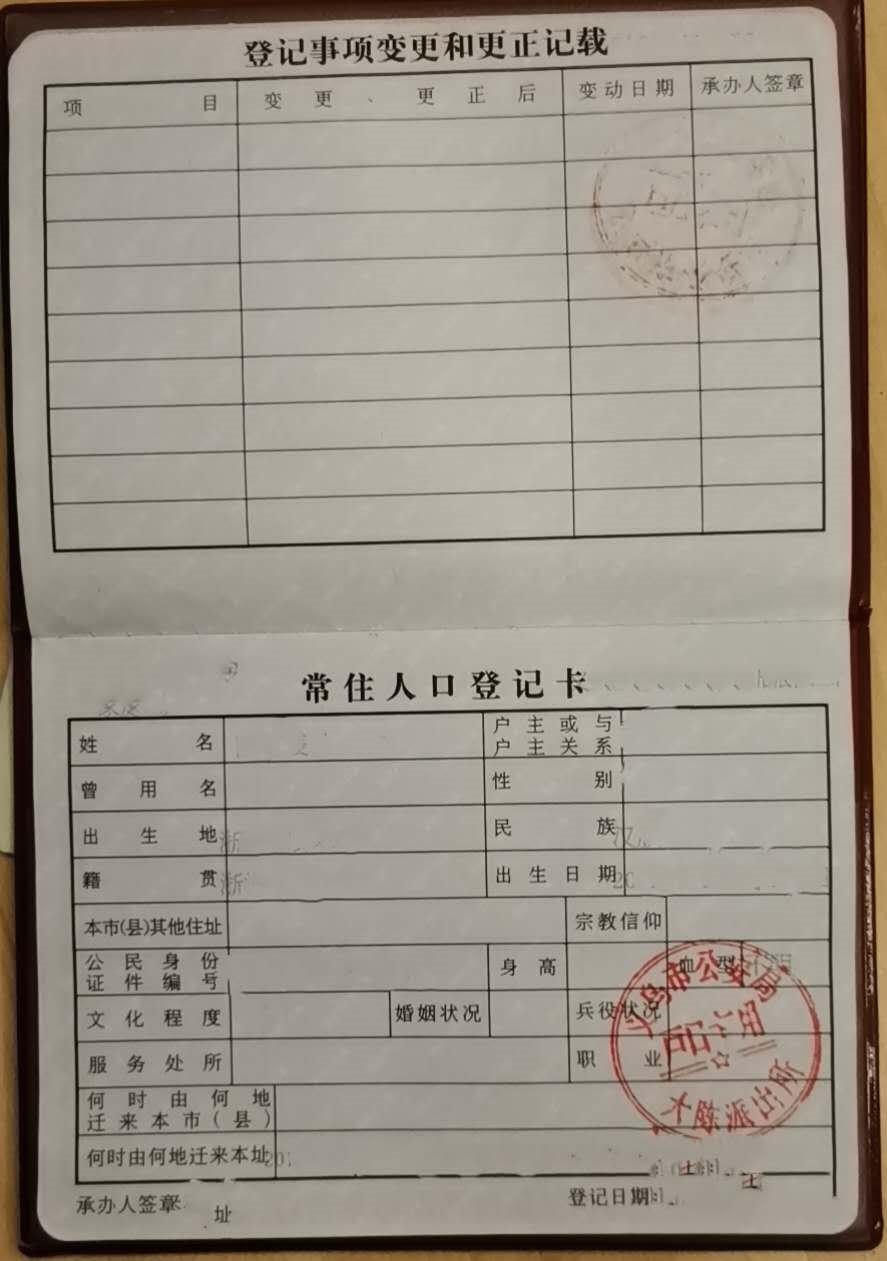 登记事项变更和更正记载
项 目 变 更 、 更 正 后 变动日期 承办人签章
常住人口登记卡
姓 名 户主或与户主关系
曾 用 名 性 别
出 生 地 浙 民 族
籍 贯 浙 出生日期
本市(县)其他住址 宗教信仰
公民身份证件编号 身 高 血 型
文化程度 婚姻状况 兵役状况
服务处所 职 业
何时由何地迁来本市(县)
何时由何地迁来本址 20
承办人签章 址 登记日期
义乌市公安局
户口专用
派出所